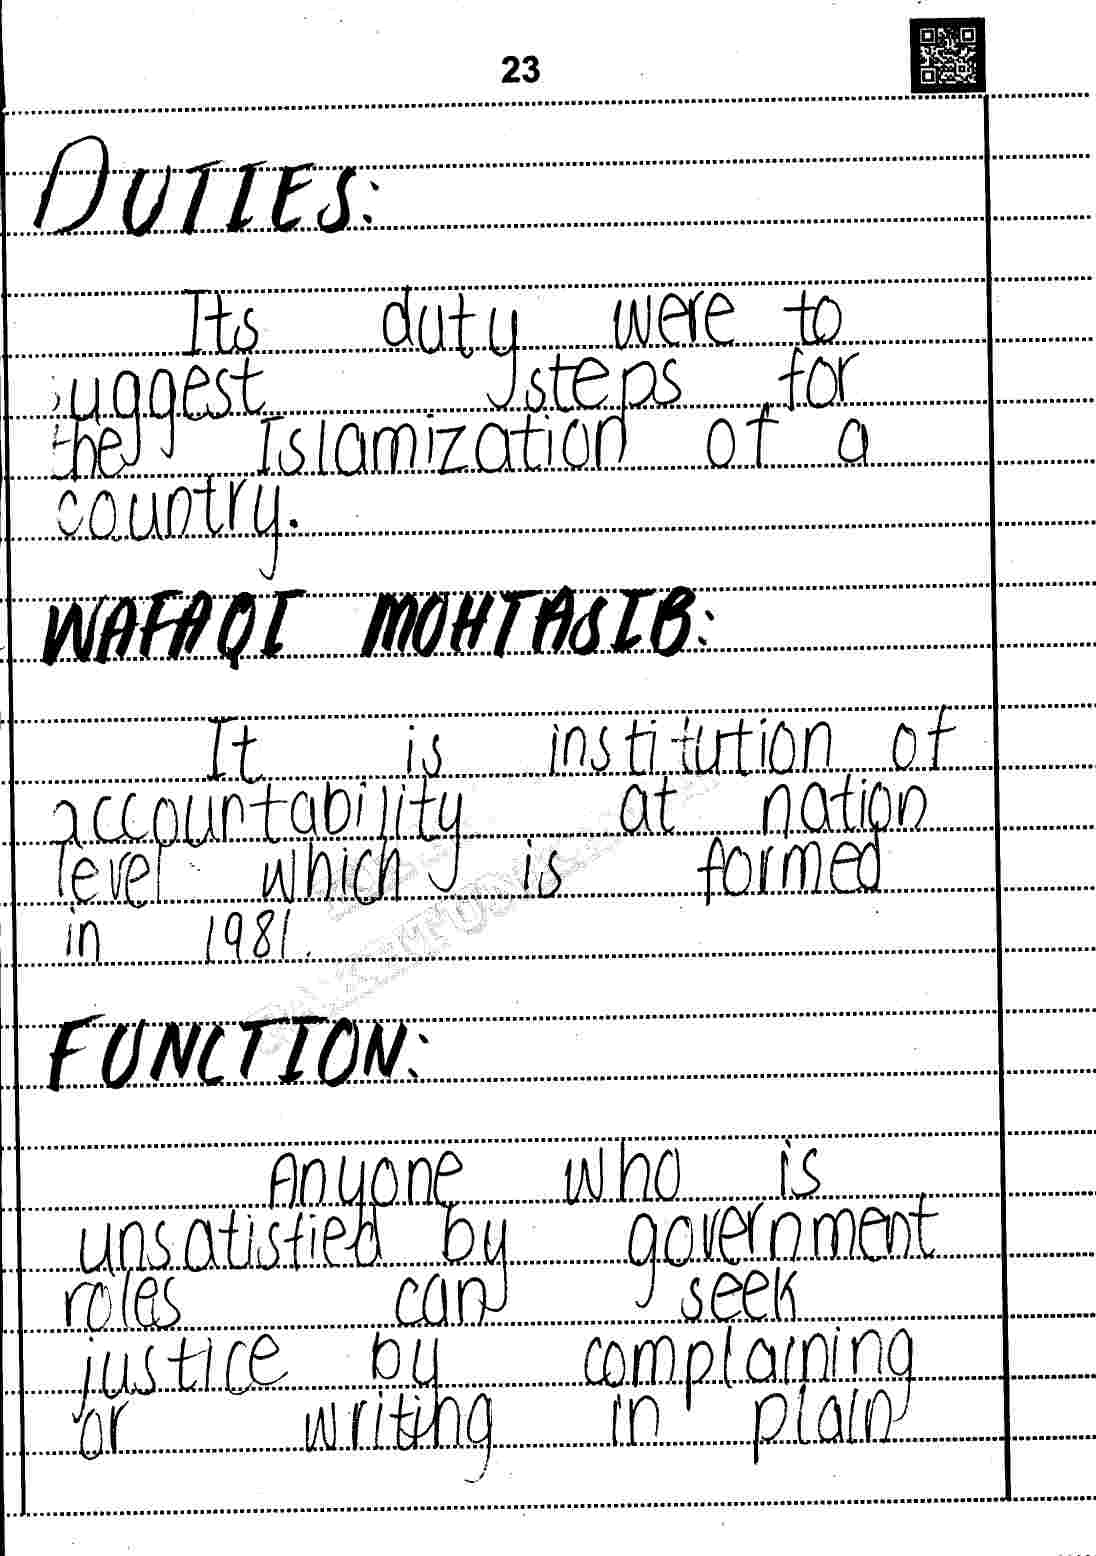 23
DUTIES:
Its duty were to
suggest steps for
the Islamization of a
country.
WAFAQI MOHTASIB:
It is institution of
accountability at nation
level which is formed
in 1981.
FUNCTION:
Anyone who is
unsatisfied by government
roles can seek
justice by complaining
or writing in plain